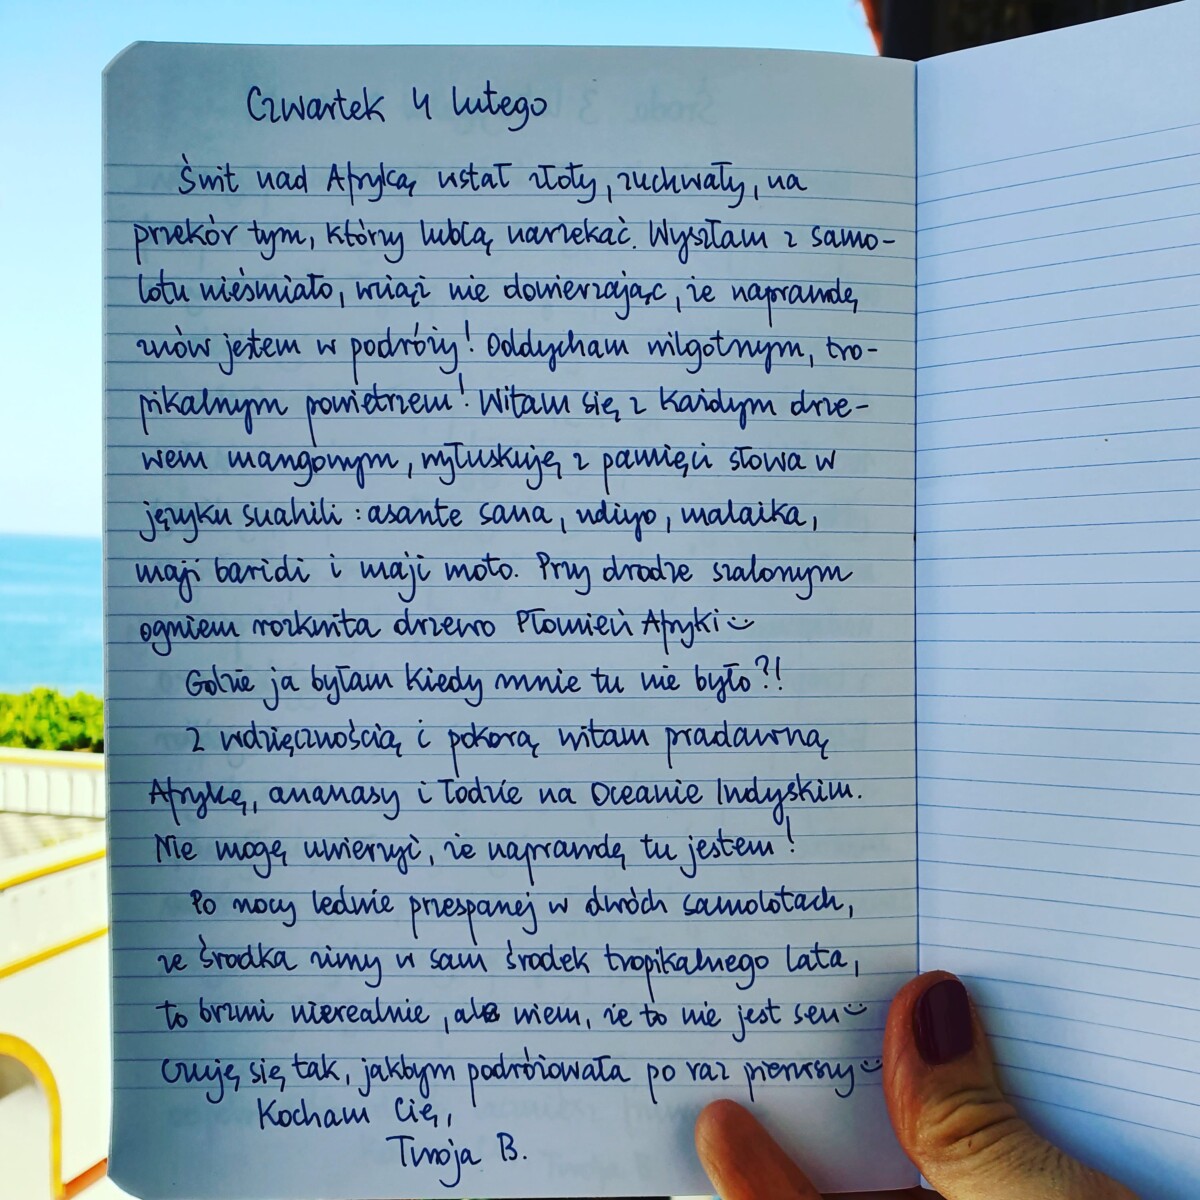 Czwartek 4 lutego
Świt nad Afryką wstał złoty, zuchwały, na
przekór tym, którzy lubią narzekać. Wyszłam z samo-
lotu nieśmiało, wciąż nie dowierzając, że naprawdę
znów jestem w podróży! Oddycham wilgotnym, tro-
pikalnym powietrzem! Witam się z każdym drze-
wem mangowym, wyłuskuję z pamięci słowa w
języku suahili : asante sana, ndiyo, malaika,
maji baridi i maji moto. Przy drodze szalonym
ogniem rozkwita drzewo Płomień Afryki
Gdzie ja byłam kiedy mnie tu nie było?!
Z wdzięcznością i pokorą witam pradawną
Afrykę, ananasy i łodzie na Oceanie Indyjskim.
Nie mogę uwierzyć, że naprawdę tu jestem!
Po nocy ledwie przespanej w dwóch samolotach,
ze środka zimy w sam środek tropikalnego lata,
to brzmi nierealnie, ale wiem, że to nie jest sen
czuję się tak, jakbym podróżowała po raz pierwszy
Kocham Cię,
Twoja B.